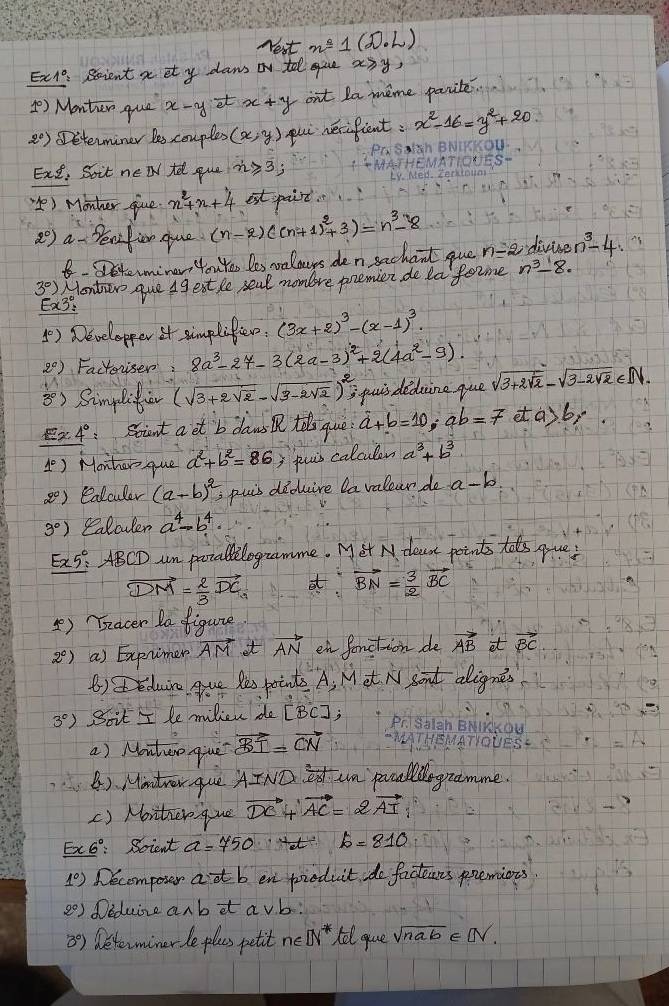 Test n°1 (D.L)
Ex1°: Soient x et y dans IN tel que x⩾y,
1°) Montrer que x-y et x+y ont la même parité.
2°) Déterminer les couples (x,y) qui vérifient : x²-16=y²+20.
Pr. Salah BNIKKOU
-MATHEMATIQUES-
Ly. Med. Zerktouni
Ex2: Soit n∈IN tel que n⩾3;
1°) Montrer que n²+n+4 est pair.
2°) a- Vérifier que (n-2)((n+1)²+3)=n³-8
b- Déterminer toutes les valeurs de n sachant que n-2 divise n³-4.
3°) Montrer que 19 est le seul nombre premier de la forme n³-8.
Ex3°:
1°) Développer et simplifier: (3x+2)³-(x-1)³.
2°) Factoriser : 8a³-27-3(2a-3)²+2(4a²-9).
3°) Simplifier (√3+2√2-√3-2√2)²; puis déduire que √3+2√2-√3-2√2∈IN.
Ex4°: Soient a et b dans IR tels que: a+b=10; ab=7 et a>b;
1°) Montrer que a²+b²=86; puis calculer a³+b³
2°) Calculer (a-b)²; puis déduire la valeur de a-b.
3°) Calculer a⁴-b⁴.
Ex5°: ABCD un parallèlogramme. M et N deux points tels que:
DM = 2/3 DC, et : BN = 3/2 BC
1°) Tracer la figure
2°) a) Exprimer AM et AN en fonction de AB et BC.
b) Déduire que les points A, M et N sont alignés.
3°) Soit I le milieu de [BC];
Pr. Salah BNIKKOU
-MATHEMATIQUES-
a) Montrer que BI = CN
b) Montrer que AIND est un parallèlogramme.
c) Montrer que DC + AC = 2AI;
Ex6°: Soient a=750 et b=810
1°) Décomposer a et b en produit de facteurs premiers.
2°) Déduire a∧b et a∨b.
3°) Déterminer le plus petit n∈IN* tel que √nab ∈ IN.